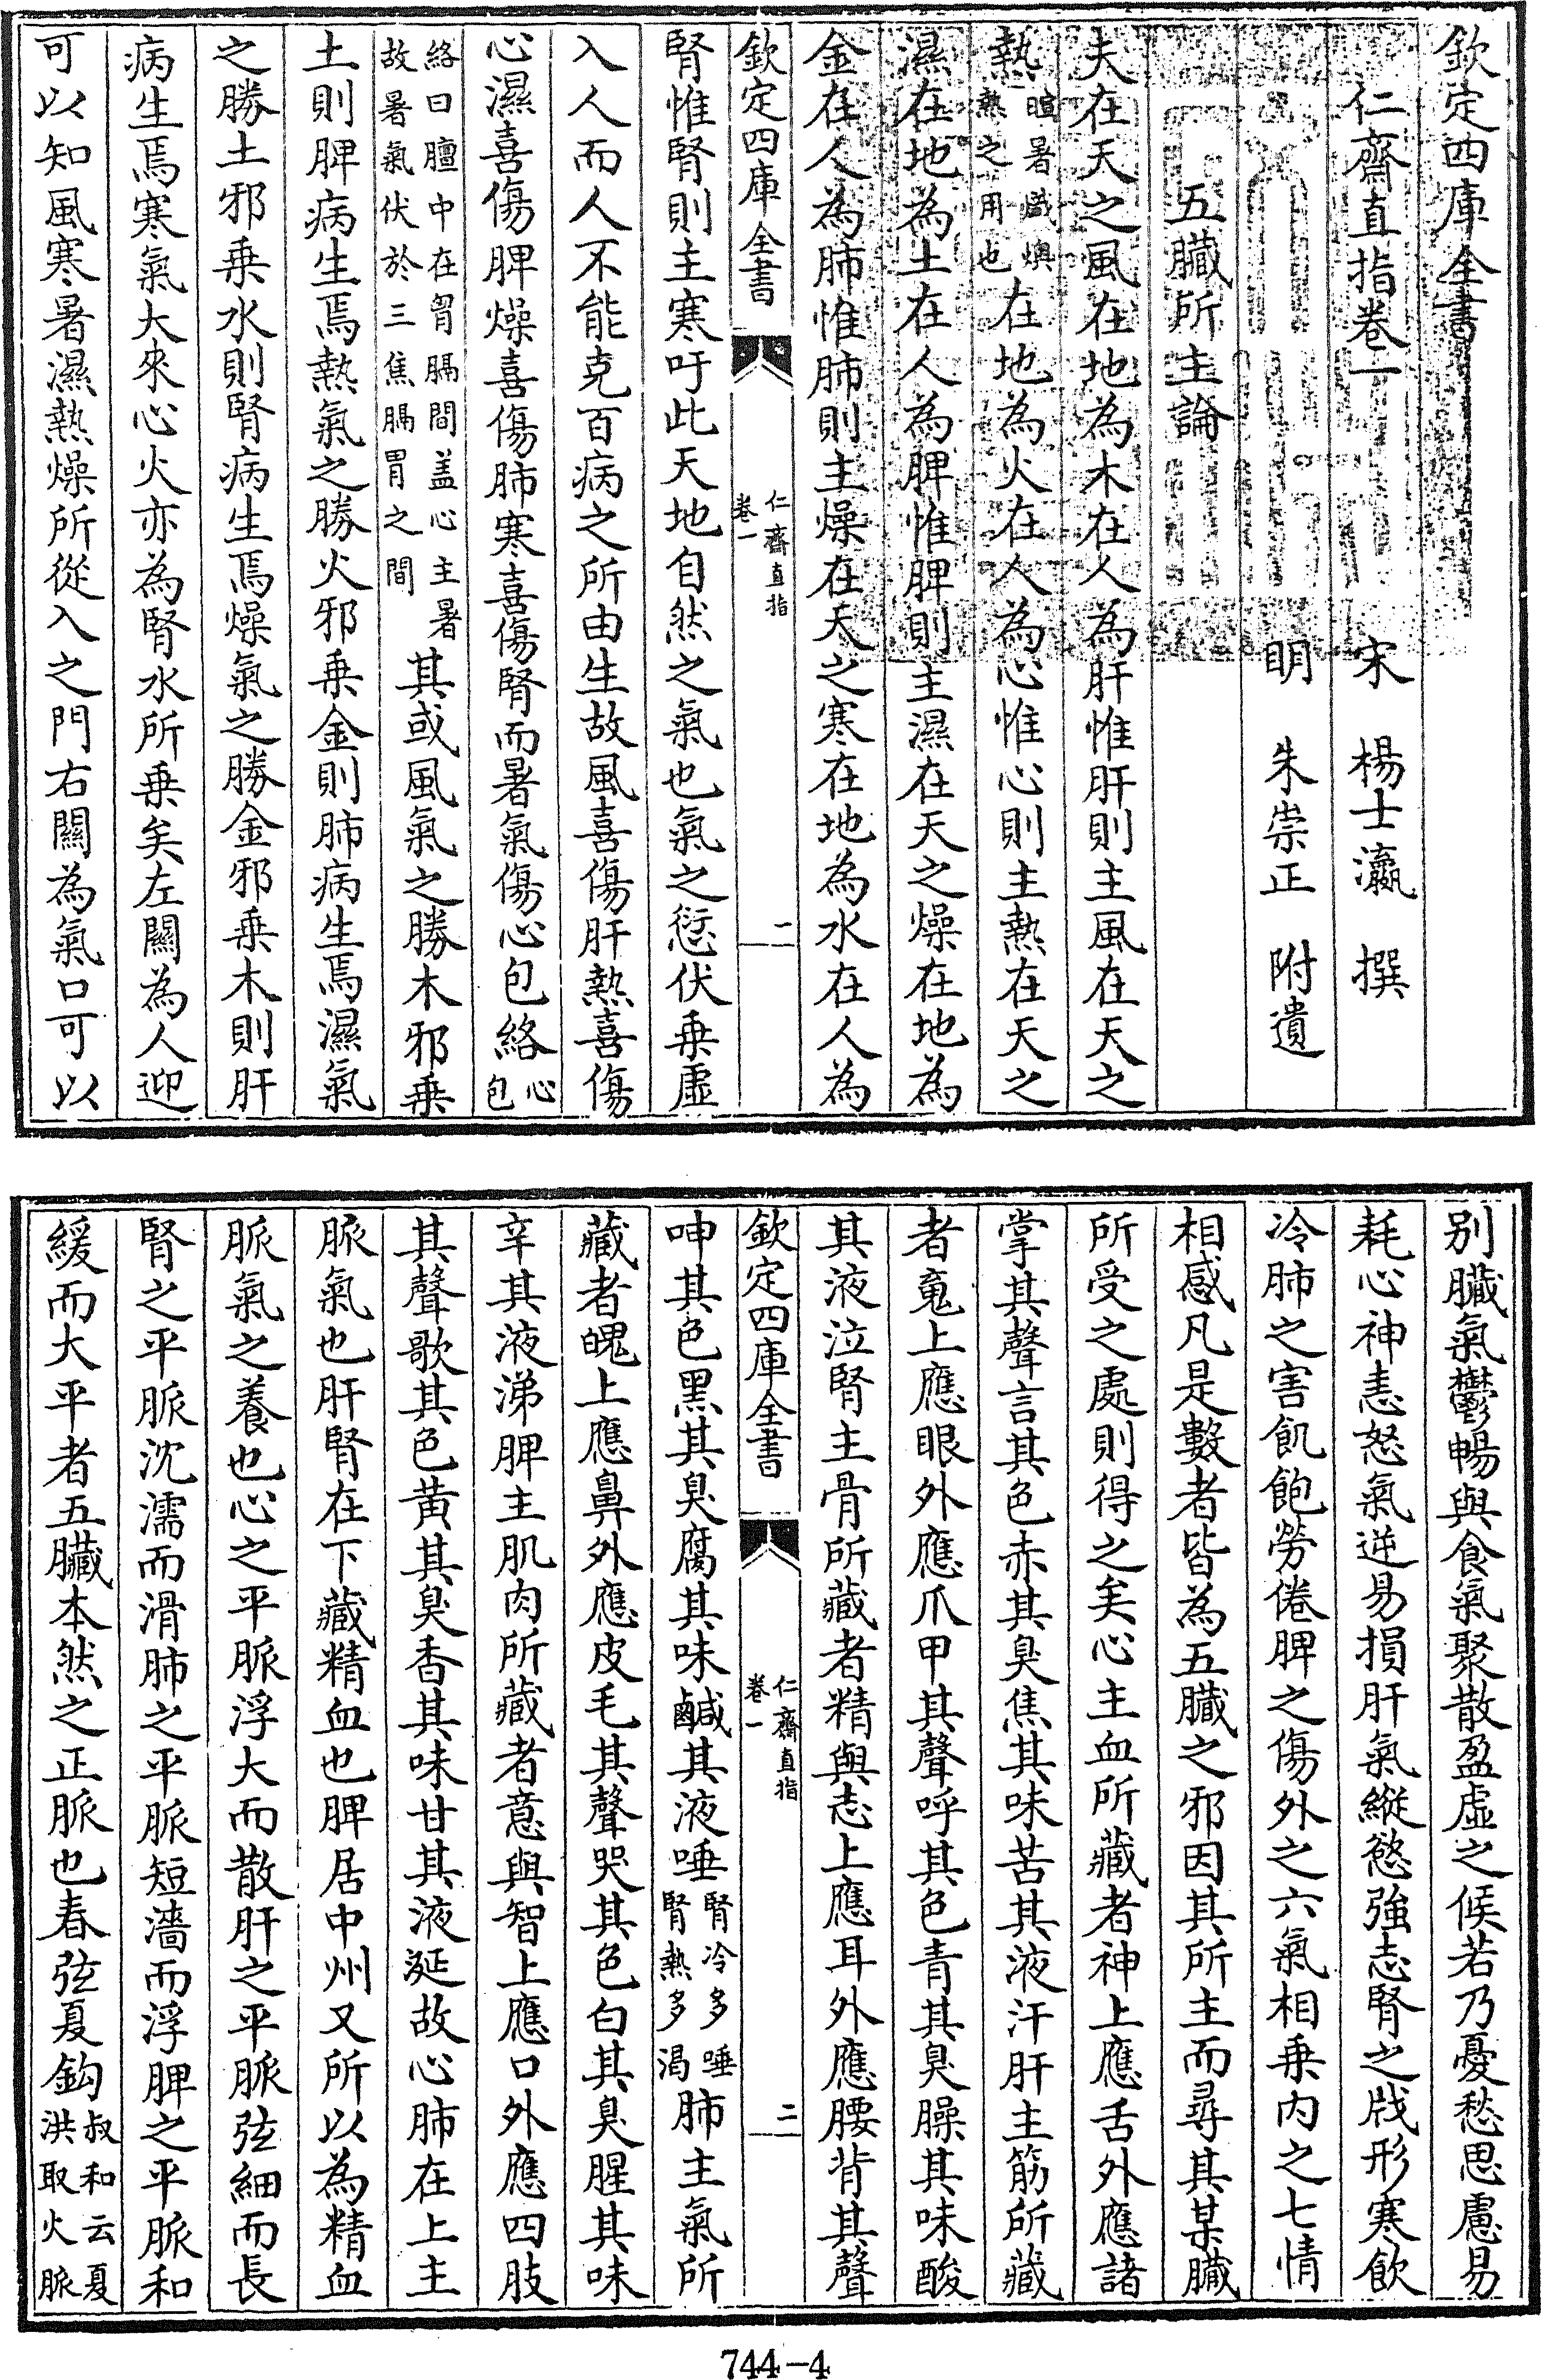 欽定四庫全書
仁齋直指卷一　宋　楊士瀛　撰
明　朱崇正　附遺
五臟所主論
夫在天之風在地為木在人為肝惟肝則主風在天之
熱暄暑熾燠熱之用也在地為火在人為心惟心則主熱在天之
濕在地為土在人為脾惟脾則主濕在天之燥在地為
金在人為肺惟肺則主燥在天之寒在地為水在人為
欽定四庫全書　仁齋直指卷一　二
腎惟腎則主寒吁此天地自然之氣也氣之愆伏乗虛
入人而人不能克百病之所由生故風喜傷肝熱喜傷
心濕喜傷脾燥喜傷肺寒喜傷腎而暑氣傷心包絡心包
絡曰膻中在胷膈間盖心主暑故暑氣伏於三焦膈胃之間其或風氣之勝木邪乗
土則脾病生焉熱氣之勝火邪乗金則肺病生焉濕氣
之勝土邪乗水則腎病生焉燥氣之勝金邪乗木則肝
病生焉寒氣大來心火亦為腎水所乗矣左關為人迎
可以知風寒暑濕熱燥所從入之門右關為氣口可以
别臟氣鬱暢與食氣聚散盈虛之候若乃憂愁思慮易
耗心神恚怒氣逆易損肝氣縱慾強志腎之戕形寒飲
冷肺之害飢飽勞倦脾之傷外之六氣相乗内之七情
相感凡是數者皆為五臟之邪因其所主而尋其某臟
所受之處則得之矣心主血所藏者神上應舌外應諸
掌其聲言其色赤其臭焦其味苦其液汗肝主筋所藏
者䰟上應眼外應爪甲其聲呼其色青其臭臊其味酸
其液泣腎主骨所藏者精與志上應耳外應腰背其聲
欽定四庫全書　仁齋直指卷一　二
呻其色黑其臭腐其味鹹其液唾腎冷多唾腎熱多渴肺主氣所
藏者魄上應鼻外應皮毛其聲哭其色白其臭腥其味
辛其液涕脾主肌肉所藏者意與智上應口外應四肢
其聲歌其色黄其臭香其味甘其液涎故心肺在上主
脈氣也肝腎在下藏精血也脾居中州又所以為精血
脈氣之養也心之平脈浮大而散肝之平脈弦細而長
腎之平脈沈濡而滑肺之平脈短濇而浮脾之平脈和
緩而大平者五臟本然之正脈也春弦夏鈎叔和云夏洪取火脈
744-4